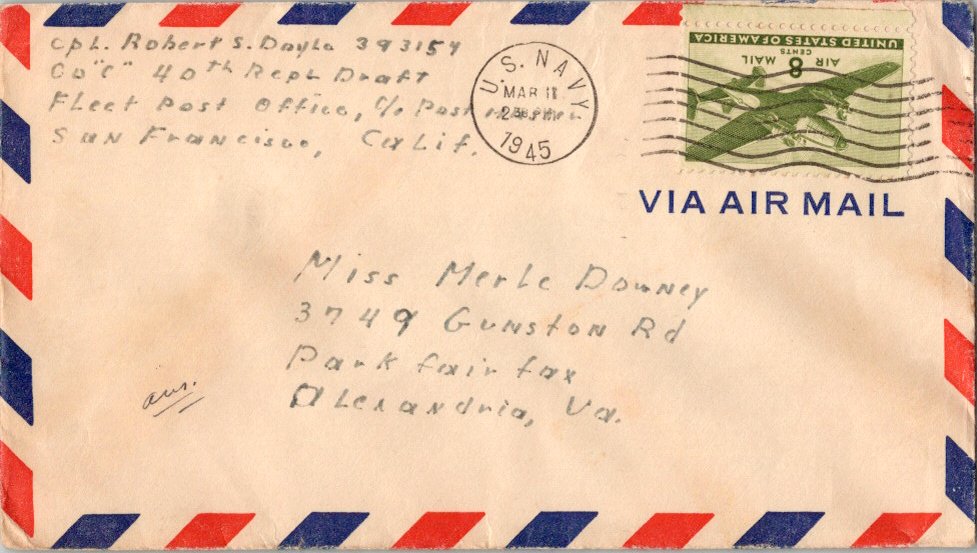 Cpl. Robert S. Doyle 393154
Co "C" 40th Repl Draft
Fleet Post Office, c/o Postmaster
San Francisco, Calif.
U.S. NAVY
MAR 11
1945
UNITED STATES OF AMERICA
AIR MAIL
8 CENTS
VIA AIR MAIL
Miss Merle Downey
3749 Gunston Rd
Parkfairfax
Alexandria, Va.
ans.